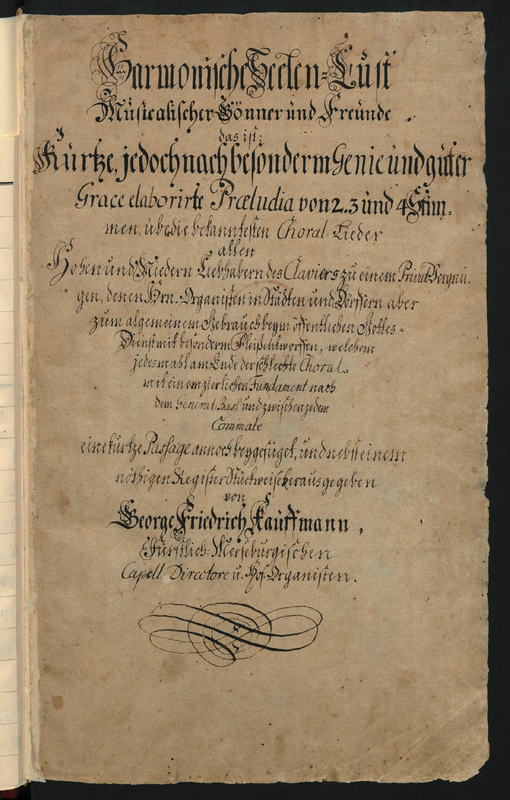 Harmonische Seelen-Lust
Musicalischer Gönner und Freunde.
das ist:
Kurtze, jedoch nach besonderm Genie und guter
Grace elaborirte Præludia von 2. 3 und 4 Stim-
men, über die bekanntesten Choral-Lieder
allen
Hohen und Niedern Liebhabern des Claviers zu einem Privat Vergnü-
gen, denen Hrn. Organisten in Städten und Dörffern aber
zum algemeinem Gebrauch beym öffentlichen Gottes-
Dienst mit besonderm Fleiß entworffen, welchem
jedesmahl am Ende der schlechte Choral
mit einem zierlichen Fundament nach
dem General-Bass und zwischen jedem
Commate
eine kurtze Passage annoch beygefüget, und nebst einem
nöthigen Register Stückweise herausgegeben
von
George Friedrich Kauffmann,
Fürstlich-Merseburgischen
Capell Directore u. Hof-Organisten.